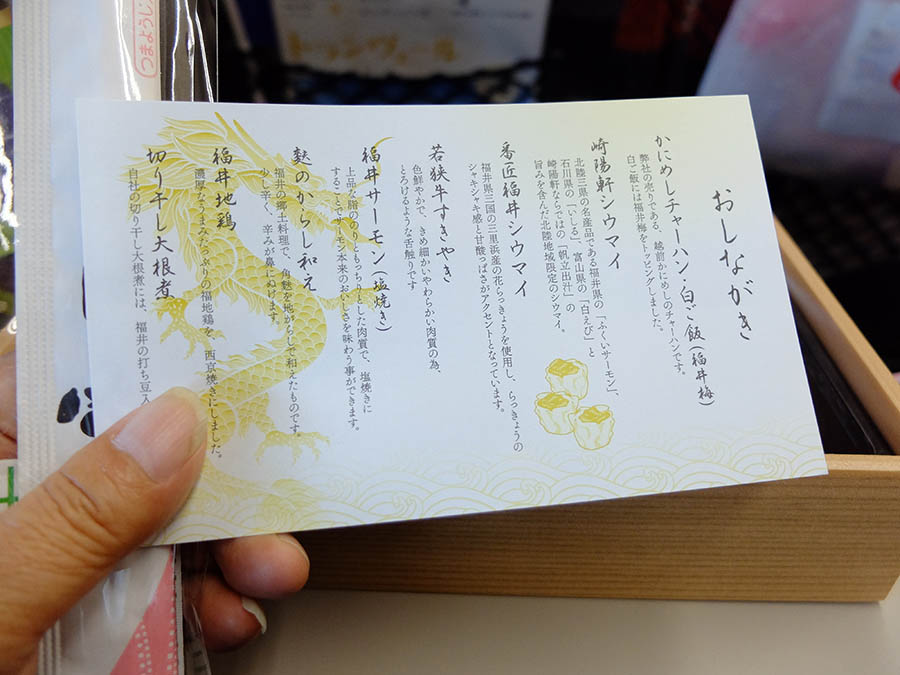 おしながき
かにめしチャーハン・白ご飯(福井梅)
弊社の売りである、越前かにめしのチャーハンです。
白ご飯には福井梅をトッピングしました。
崎陽軒シウマイ
北陸三県の名産品である福井県の「ふくいサーモン」、
石川県の「いしる」、富山県の「白えび」と
崎陽軒ならではの「帆立出汁」の
旨みを含んだ北陸地域限定のシウマイ。
番匠福井シウマイ
福井県三国の三里浜産の花らっきょうを使用し、らっきょうの
シャキシャキ感と甘酸っぱさがアクセントとなっています。
若狭牛すきやき
色鮮やかで、きめ細かいやわらかい肉質の為、
とろけるような舌触りです
福井サーモン(塩焼き)
上品な脂ののりともっちりとした肉質で、塩焼きに
することでサーモン本来のおいしさを味わう事ができます。
麩のからし和え
福井の郷土料理で、角麩を地がらしで和えたものです。
少し辛く、辛みが鼻にぬけます。
福井地鶏
濃厚なうまみたっぷりの福地鶏を、西京焼きにしました。
切り干し大根煮
自社の切り干し大根煮には、福井の打ち豆入
つまようじ